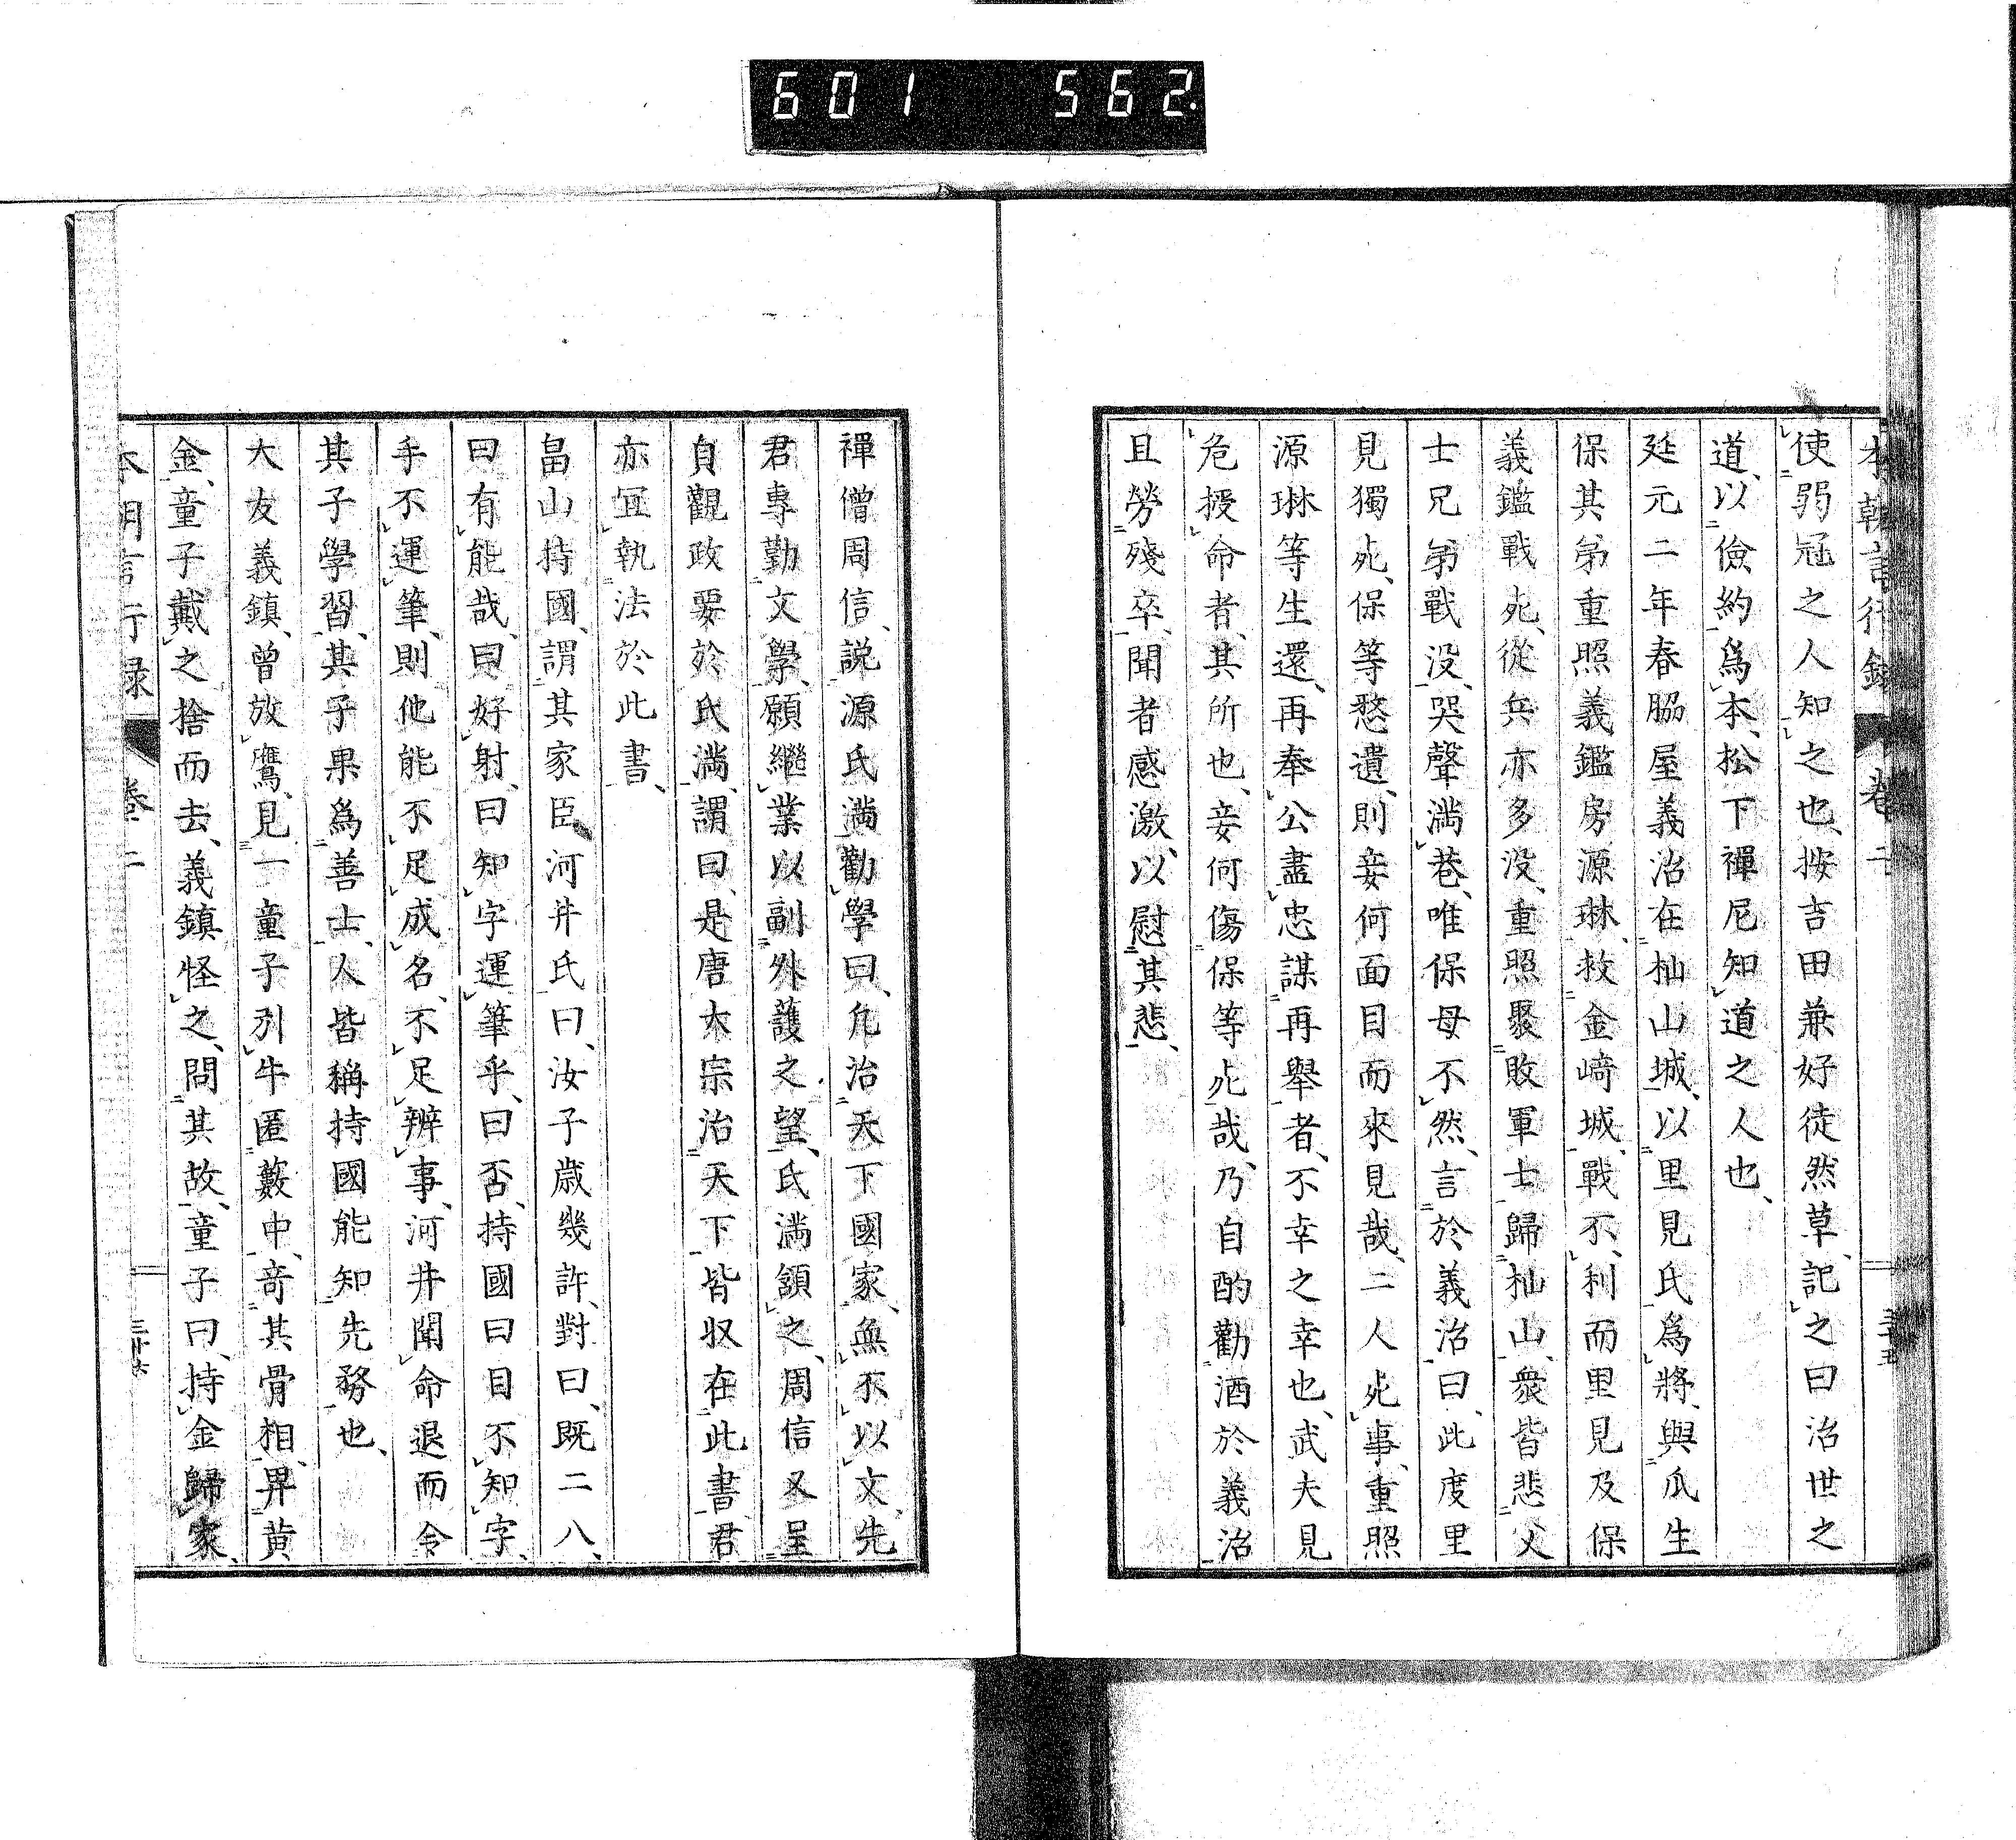 601 562
本朝言行錄 卷二
使弱冠之人知之也、按吉田兼好徒然草、記之曰治世之
道、以儉約爲本、松下禪尼知道之人也、
延元二年春脇屋義治在杣山城、以里見氏爲將、與瓜生
保其弟重照義鑑房源琳、救金﨑城、戰不利而里見及保
義鑑戰死、從兵亦多没、重照聚敗軍士歸杣山、衆皆悲父
士兄弟戰没、哭聲滿巷、唯保母不然、言於義治曰、此度里
見獨死、保等慭遺、則妾何面目而來見哉、二人死事、重照
源琳等生還、再奉公盡忠謀再舉者、不幸之幸也、武夫見
危授命者、其所也、妾何傷保等死哉、乃自酌勸酒於義治
且勞殘卒、聞者感激、以慰其悲、
禪僧周信、説源氏滿勸學曰、凢治天下國家、無不以文、先
君專勤文學、願繼業以副外護之望、氏滿頷之、周信又呈
貞觀政要於氏滿、謂曰、是唐太宗治天下、皆収在此書、君
亦宜執法於此書、
畠山持國、謂其家臣河井氏曰、汝子歳幾許、對曰、既二八、
曰有能哉、曰好射、曰知字運筆乎、曰否、持國曰目不知字、
手不運筆、則他能不足成名、不足辨事、河井聞命退而令
其子學習、其子果爲善士、人皆稱持國能知先務也、
大友義鎮、曾放鷹、見一童子引牛匿藪中、竒其骨相、畀黄
金、童子戴之捨而去、義鎮怪之、問其故、童子曰、持金歸家、
言行録 卷二